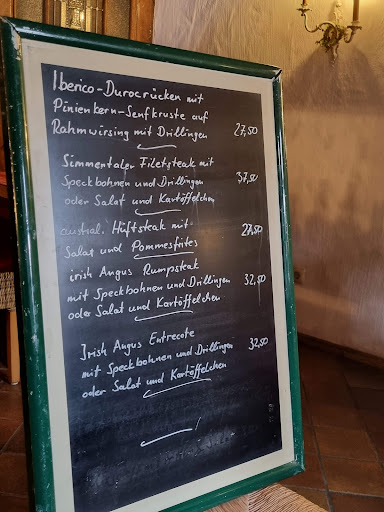 Iberico-Durocrücken mit
Pinienkern-Senfkruste auf
Rahmwirsing mit Drillingen 27,50
Simmentaler Filetsteak mit
Speckbohnen und Drillingen 37,50
oder Salat und Kartöffelchen
austral. Hüftsteak mit 27,50
Salat und Pommesfrites
irish Angus Rumpsteak
mit Speckbohnen und Drillingen 32,50
oder Salat und Kartöffelchen
Irish Angus Entrecote
mit Speckbohnen und Drillingen 32,50
oder Salat und Kartöffelchen